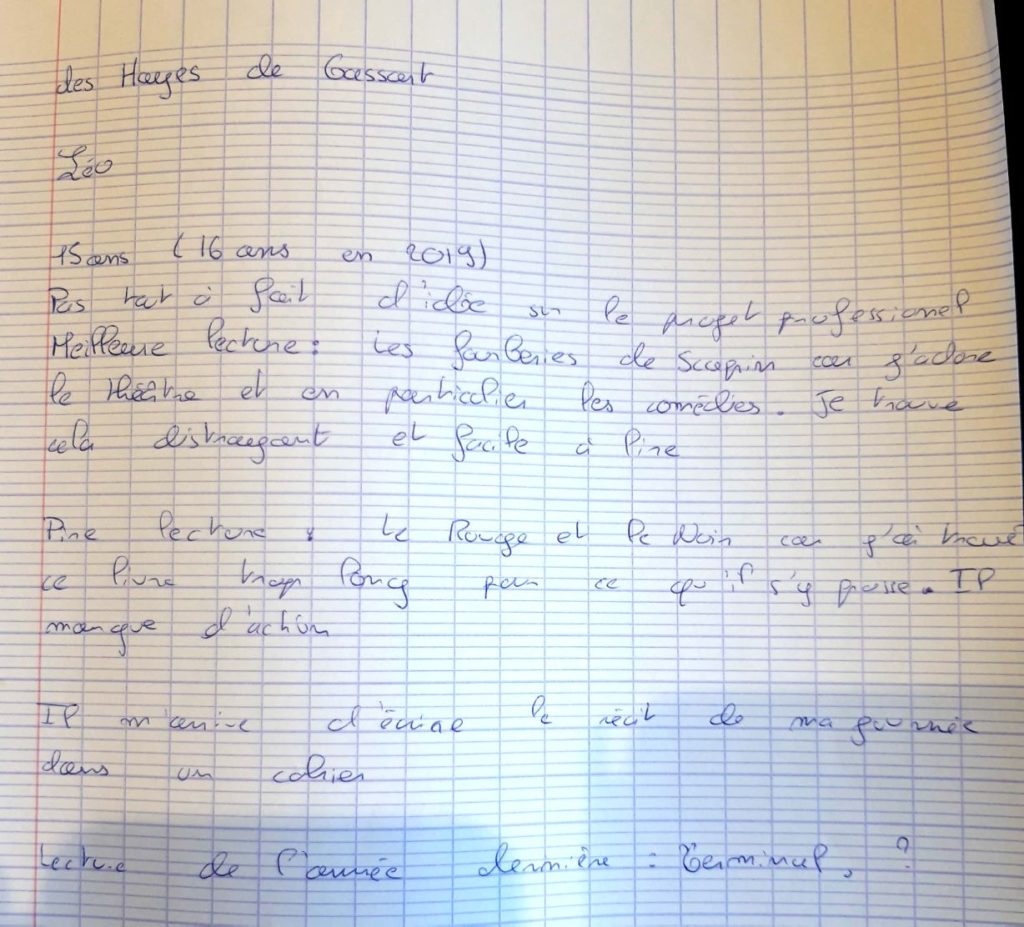 des Hayes de Gassart
Léo
15 ans (16 ans en 2019)
Pas tout à fait d'idée sur le projet professionel
Meilleure lecture : Les fourberies de Scapin car j'adore
le théâtre et en particulier les comédies. Je trouve
cela distrayant et facile à lire
Pire lecture : Le Rouge et le Noir car j'ai trouvé
ce livre trop long pour ce qu'il s'y passe. Il
manque d'action
Il m'arrive d'écrire le récit de ma journée
dans un cahier
Lecture de l'année dernière : Germinal, ?